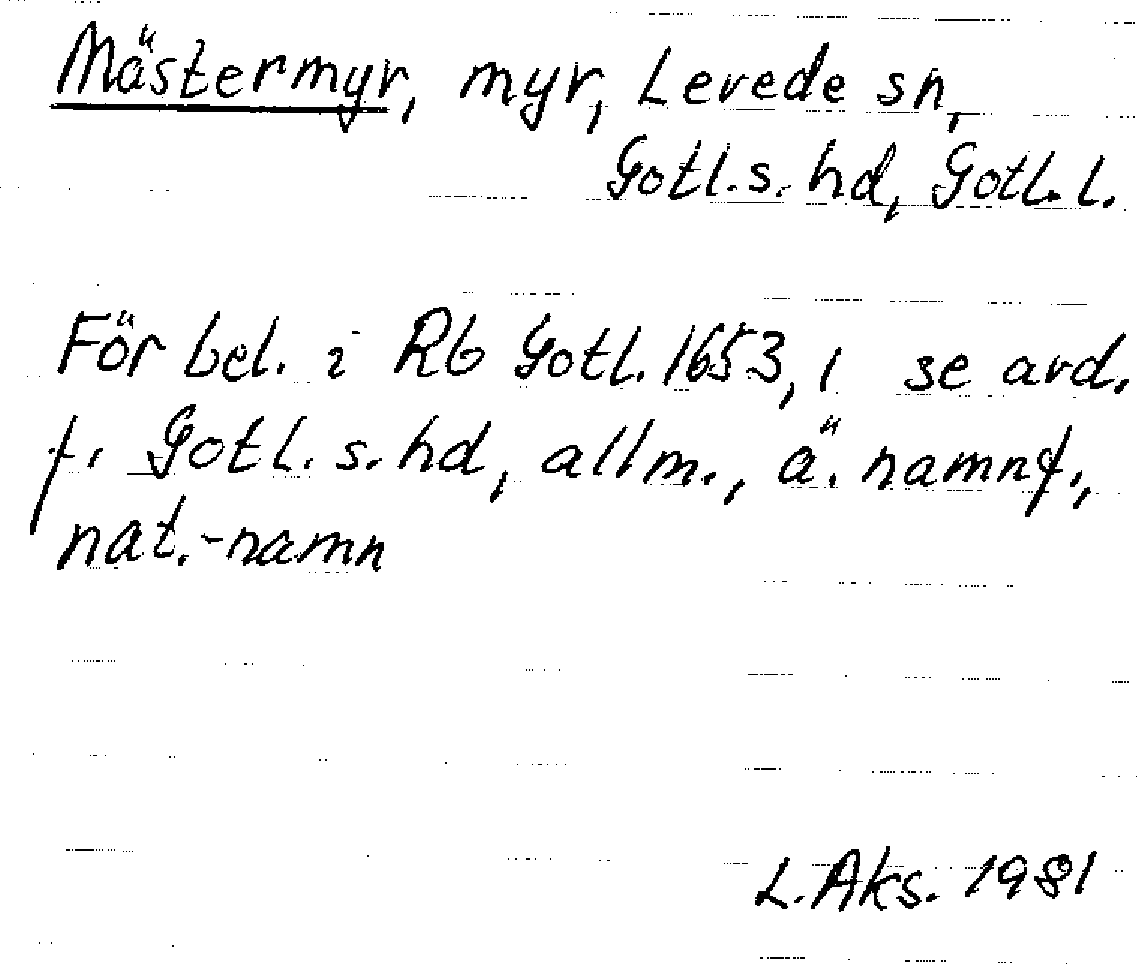 Mästermyr, myr, Levede sn,
Gotl.s. hd, Gotl. l.
För bel. i Rb Gotl. 1653, 1 se avd.
f. Gotl. s. hd, allm., ä. namnf.,
nat.-namn
L. Aks. 1981